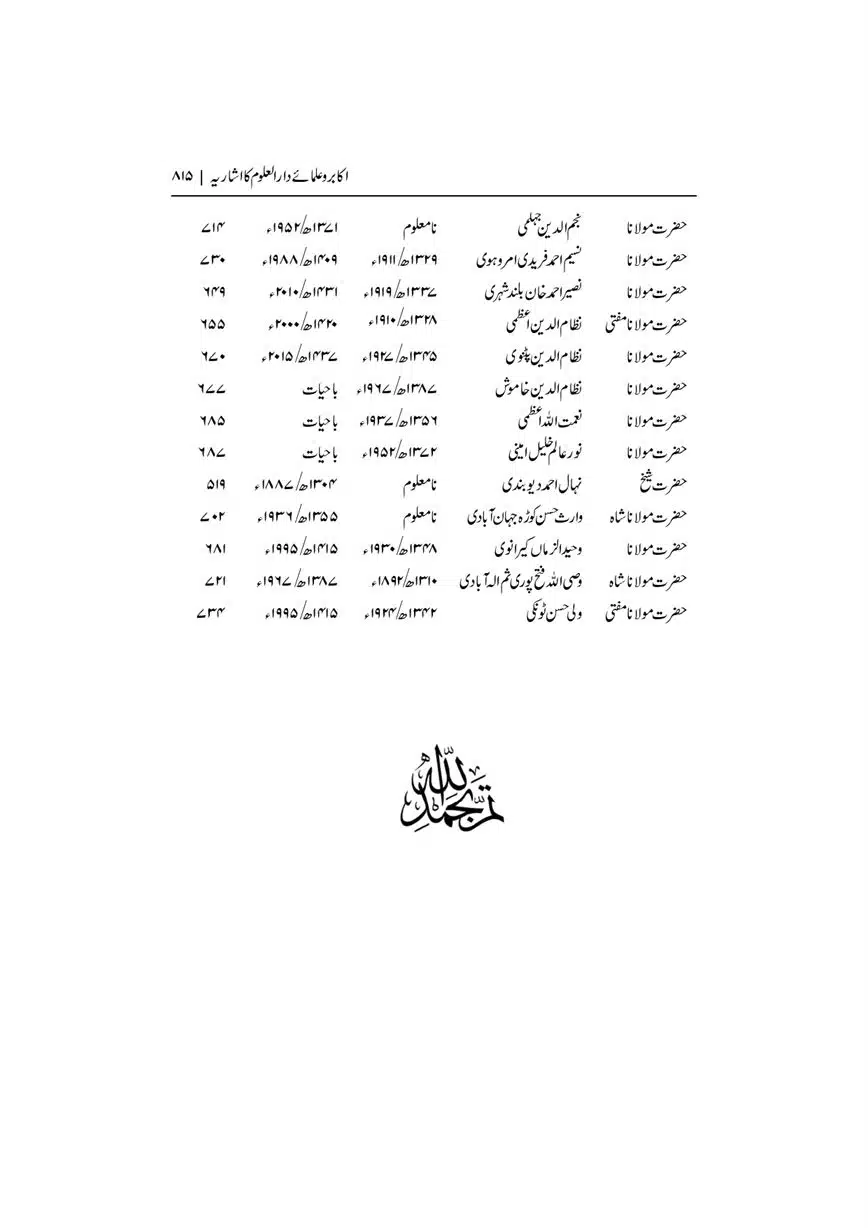 اکابر و علمائے دارالعلوم کا اشاریہ | ۸۱۵
حضرت مولانا نجم الدین جہلمی نامعلوم ۱۳۷۱ھ/۱۹۵۲ء ۷۱۴
حضرت مولانا نسیم احمد فریدی امروہوی ۱۳۲۹ھ/۱۹۱۱ء ۱۴۰۹ھ/۱۹۸۸ء ۷۳۰
حضرت مولانا نصیر احمد خان بلند شہری ۱۳۳۷ھ/۱۹۱۹ء ۱۴۳۱ھ/۲۰۱۰ء ۶۴۹
حضرت مولانا مفتی نظام الدین اعظمی ۱۳۲۸ھ/۱۹۱۰ء ۱۴۲۰ھ/۲۰۰۰ء ۶۵۵
حضرت مولانا نظام الدین پٹنوی ۱۳۴۵ھ/۱۹۲۷ء ۱۴۳۷ھ/۲۰۱۵ء ۶۷۰
حضرت مولانا نظام الدین خاموش ۱۳۸۷ھ/۱۹۶۷ء باحیات ۶۷۷
حضرت مولانا نعمت اللہ اعظمی ۱۳۵۶ھ/۱۹۳۷ء باحیات ۶۸۵
حضرت مولانا نور عالم خلیل امینی ۱۳۷۲ھ/۱۹۵۲ء باحیات ۶۸۷
حضرت شیخ نہال احمد دیوبندی نامعلوم ۱۳۰۴ھ/۱۸۸۷ء ۵۱۹
حضرت مولانا شاہ وارث حسن کوڑہ جہان آبادی نامعلوم ۱۳۵۵ھ/۱۹۳۶ء ۷۰۲
حضرت مولانا وحید الزماں کیرانوی ۱۳۴۸ھ/۱۹۳۰ء ۱۴۱۵ھ/۱۹۹۵ء ۶۸۱
حضرت مولانا شاہ وصی اللہ فتح پوری ثم الہ آبادی ۱۳۱۰ھ/۱۸۹۲ء ۱۳۸۷ھ/۱۹۶۷ء ۷۲۱
حضرت مولانا مفتی ولی حسن ٹونکی ۱۳۴۲ھ/۱۹۲۴ء ۱۴۱۵ھ/۱۹۹۵ء ۷۳۴
تم بحمد اللہ